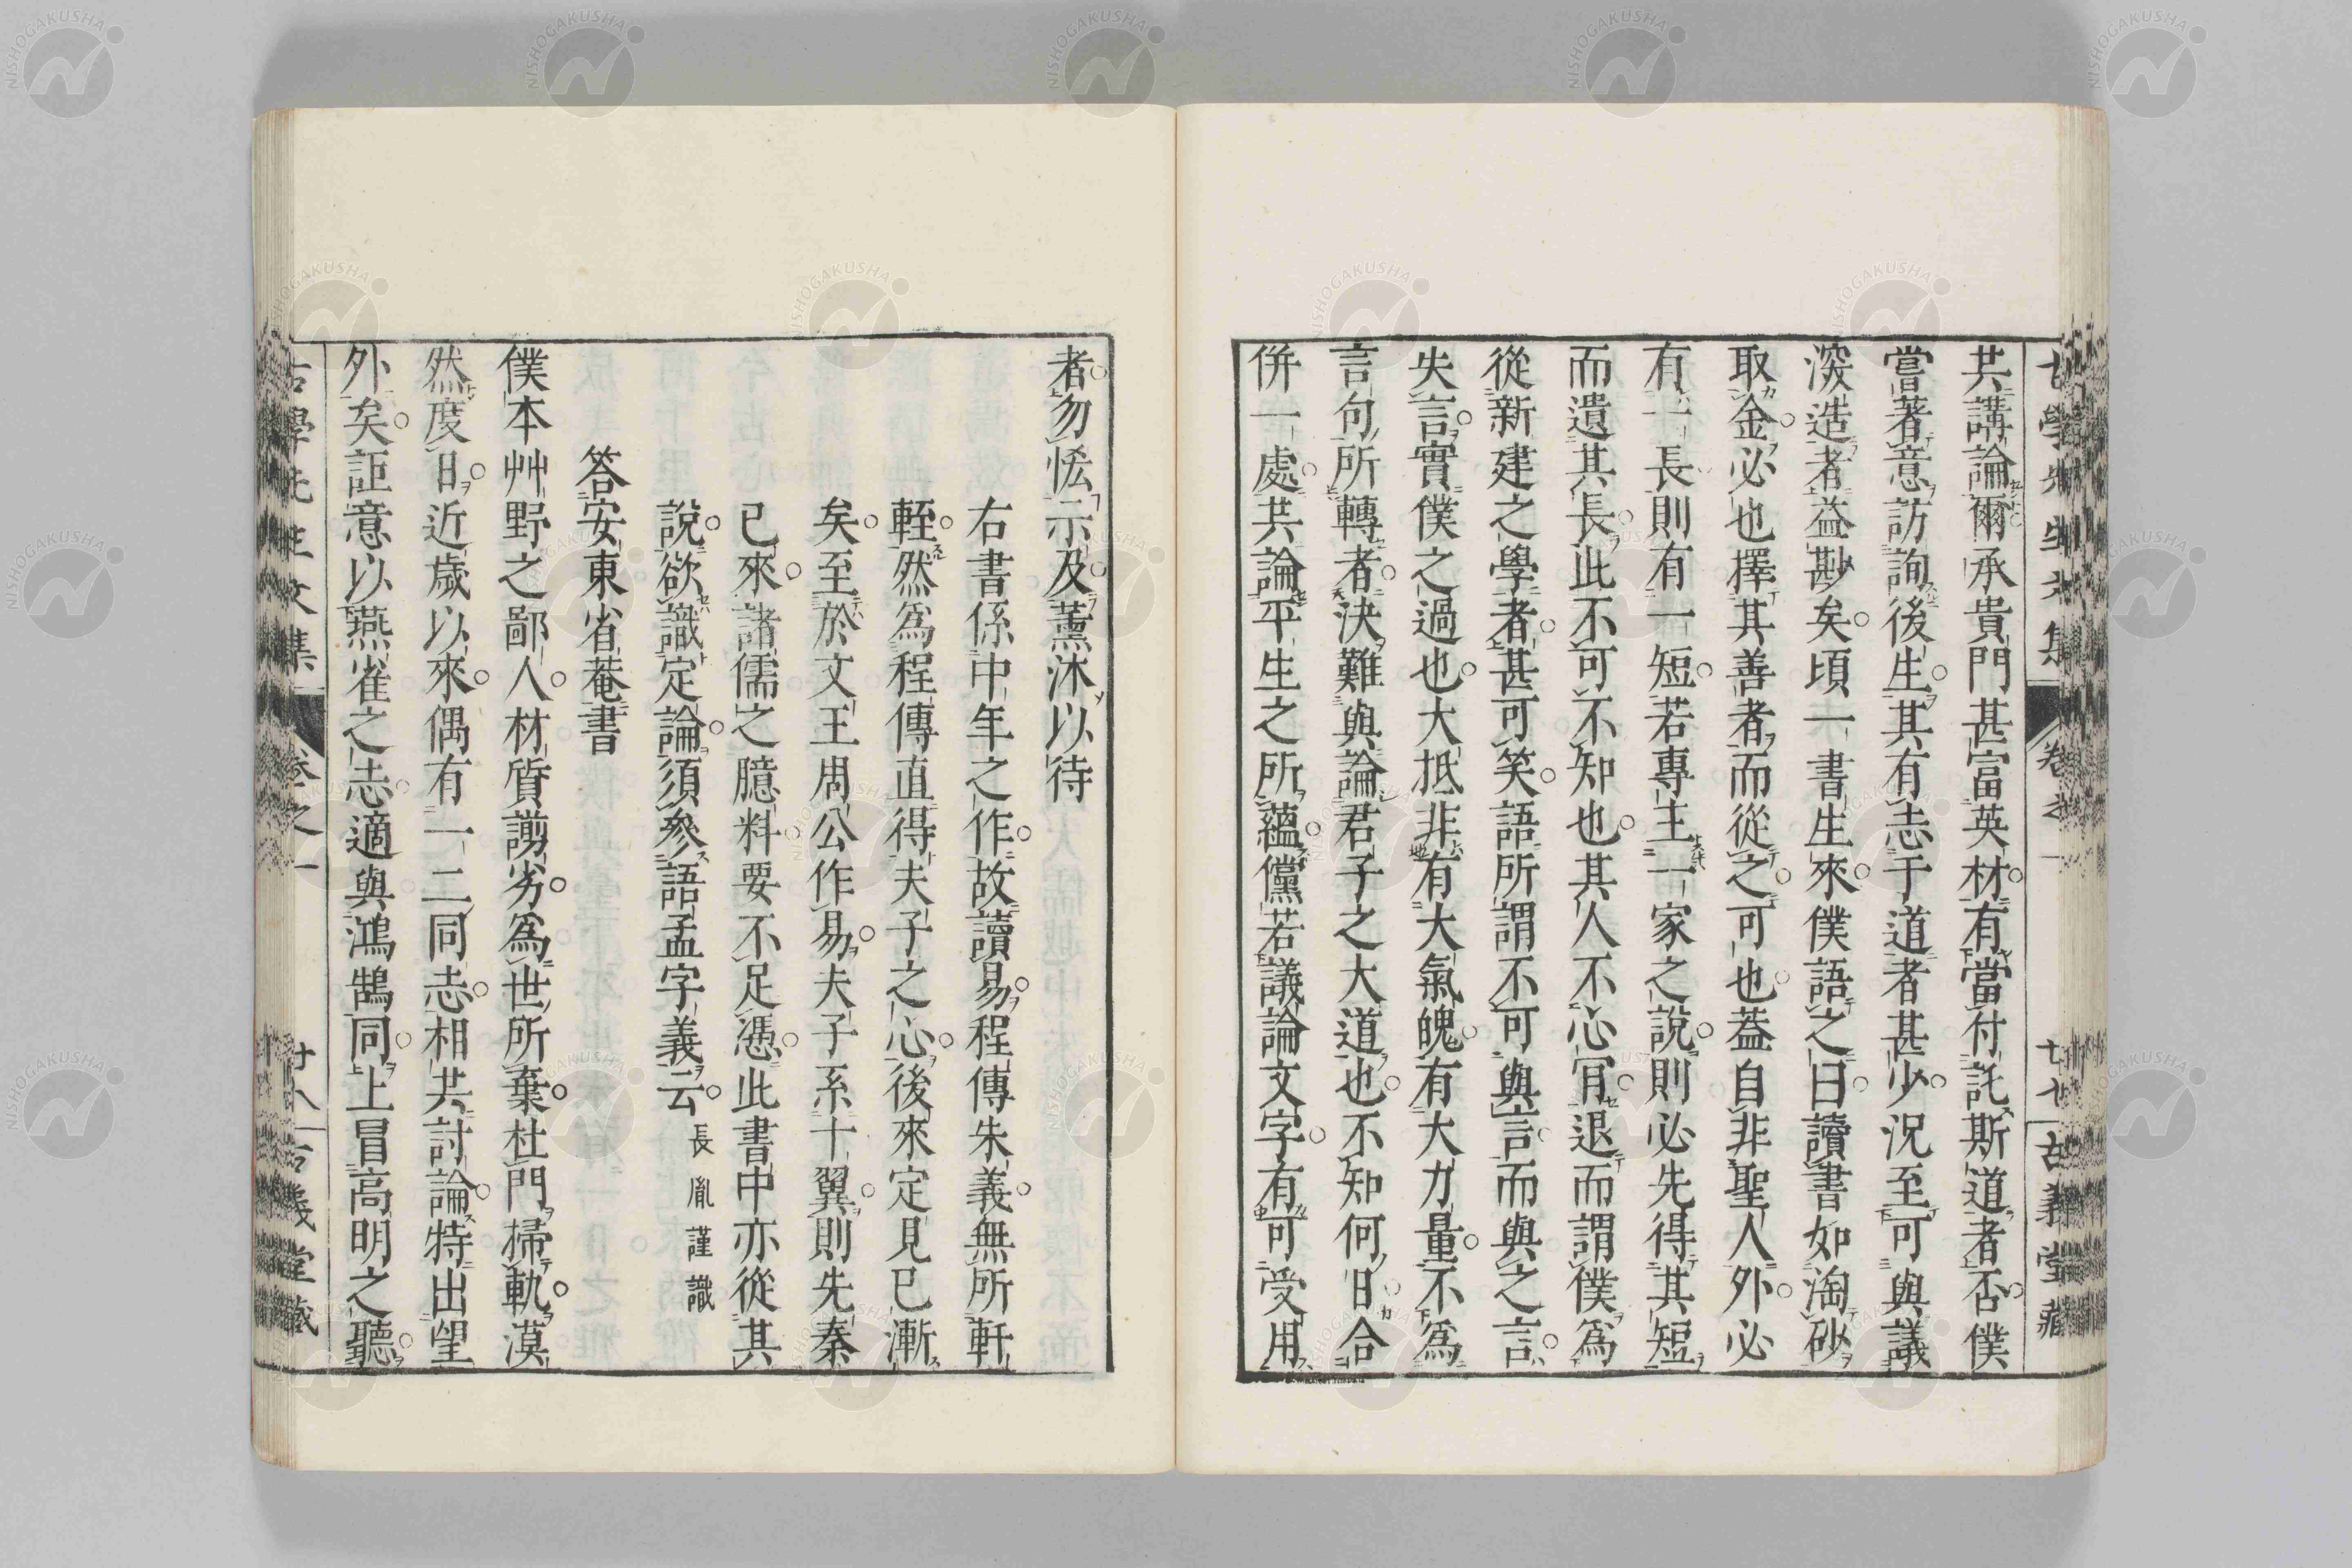 古學先生文集 卷之一 廿七 古義堂藏
共講論爾承貴門甚富英材有當付託斯道者否僕
嘗著意訪詢後生其有志于道者甚少況至可與議
深造者益尠矣頃一書生來僕語之曰讀書如淘砂
取金必也擇其善者而從之可也蓋自非聖人外必
有一長則有一短若專主一家之說則必先得其短
而遺其長此不可不知也其人不心肎退而謂僕爲
從新建之學者甚可笑語所謂不可與言而與之言
失言實僕之過也大抵非有大氣魄有大力量不爲
言句所轉者決難與論君子之大道也不知何日合
併一處共論平生之所蘊儻若議論文字有可受用
者勿恡示及薰沐以待
右書係中年之作故讀易程傳朱義無所軒
輊然爲程傳直得夫子之心後來定見已漸
矣至於文王周公作易夫子系十翼則先秦
已來諸儒之臆料要不足憑此書中亦從其
說欲識定論須參語孟字義云 長胤謹識
答安東省菴書
僕本艸野之鄙人材質謭劣爲世所棄杜門掃軌漠
然度日近歲以來偶有一二同志相共討論特出望
外矣詎意以燕雀之志適與鴻鵠同上冒高明之聽
古學先生文集 卷之一 廿八 古義堂藏
NISHOGAKUSHA